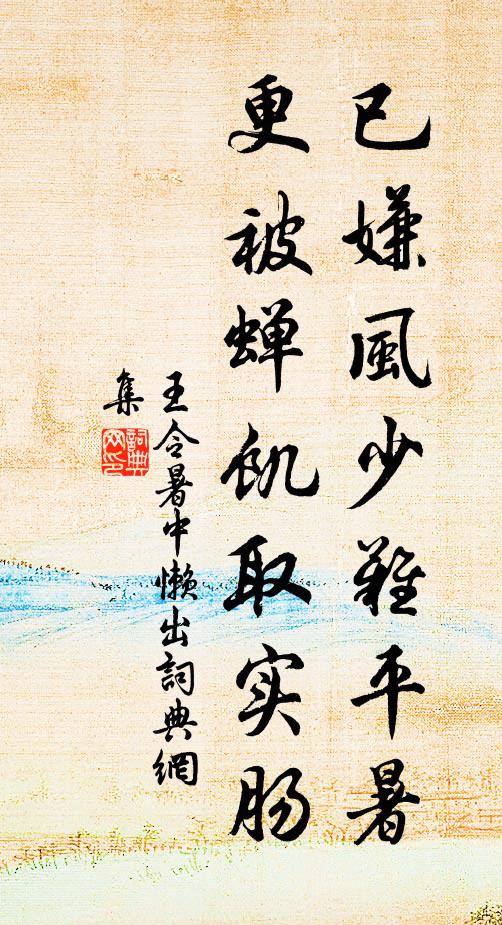 已嫌風少難平暑
更被蝉飢取实肠
王令暑中懒出詞典網
集
詞典
网印